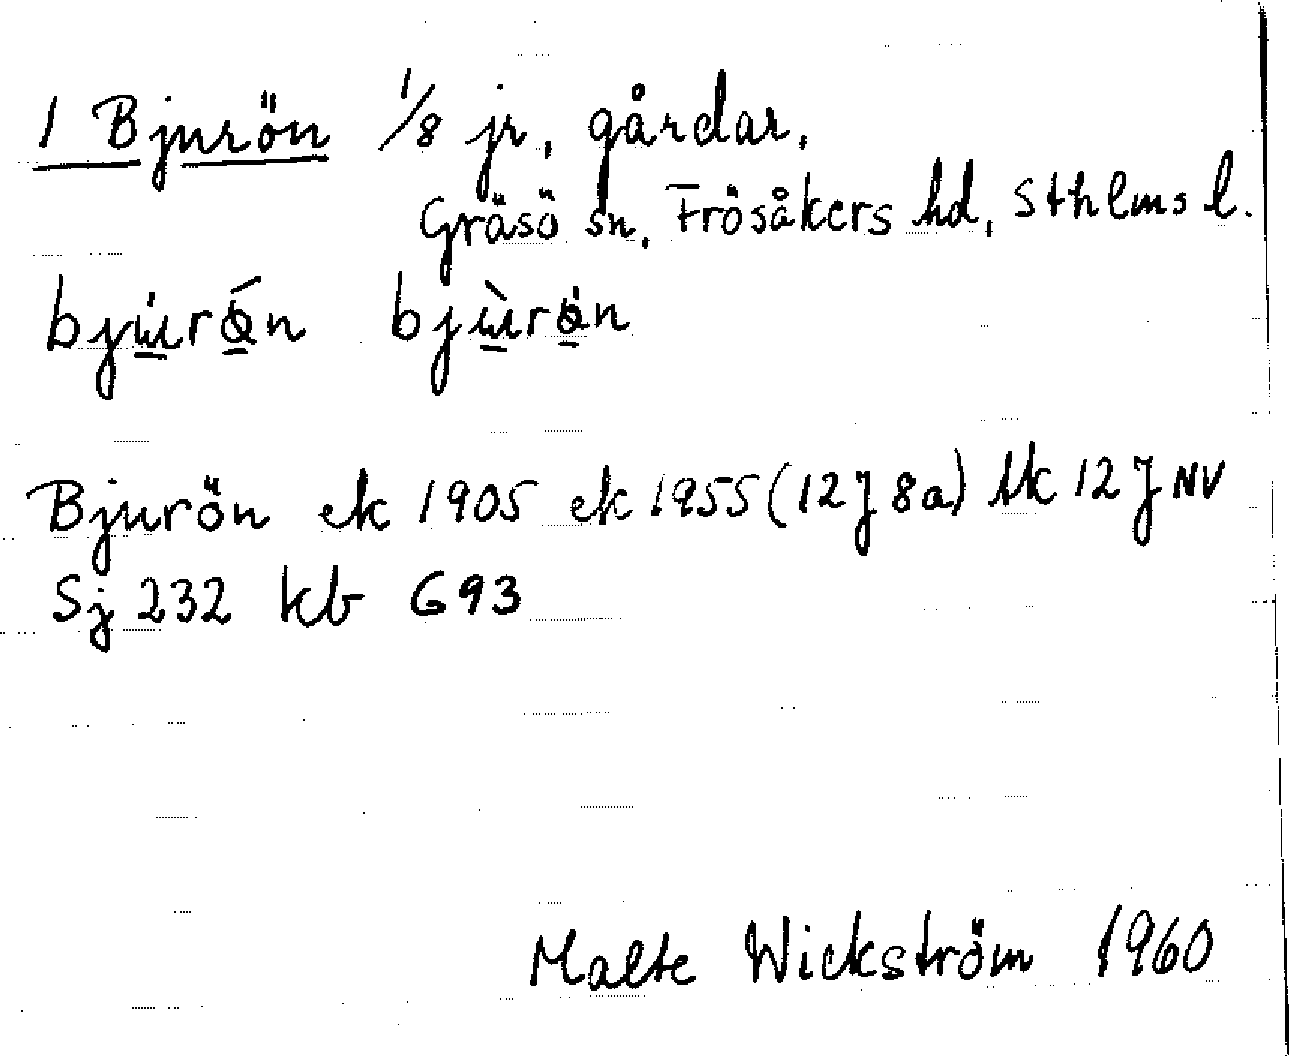 1 Bjurön 1/8 jr, gårdar,
Gräsö sn, Frösåkers hd, Sthlms l.
Bjurön ek 1905 ek 1955 (12J 8a) tk 12 J NV
Sj 232 kb G93
Malte Wickström 1960